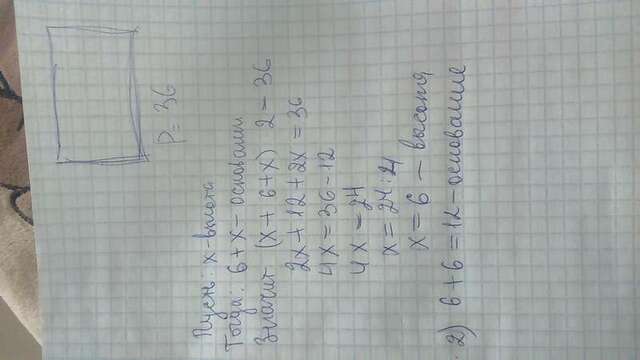 P = 36
Пусть: x - высота
Тогда: 6 + x - основании
Значит (x + 6 + x) 2 = 36
2x + 12 + 2x = 36
4x = 36 - 12
4x = 24
x = 24 : 4
x = 6 - высота
2) 6 + 6 = 12 - основание